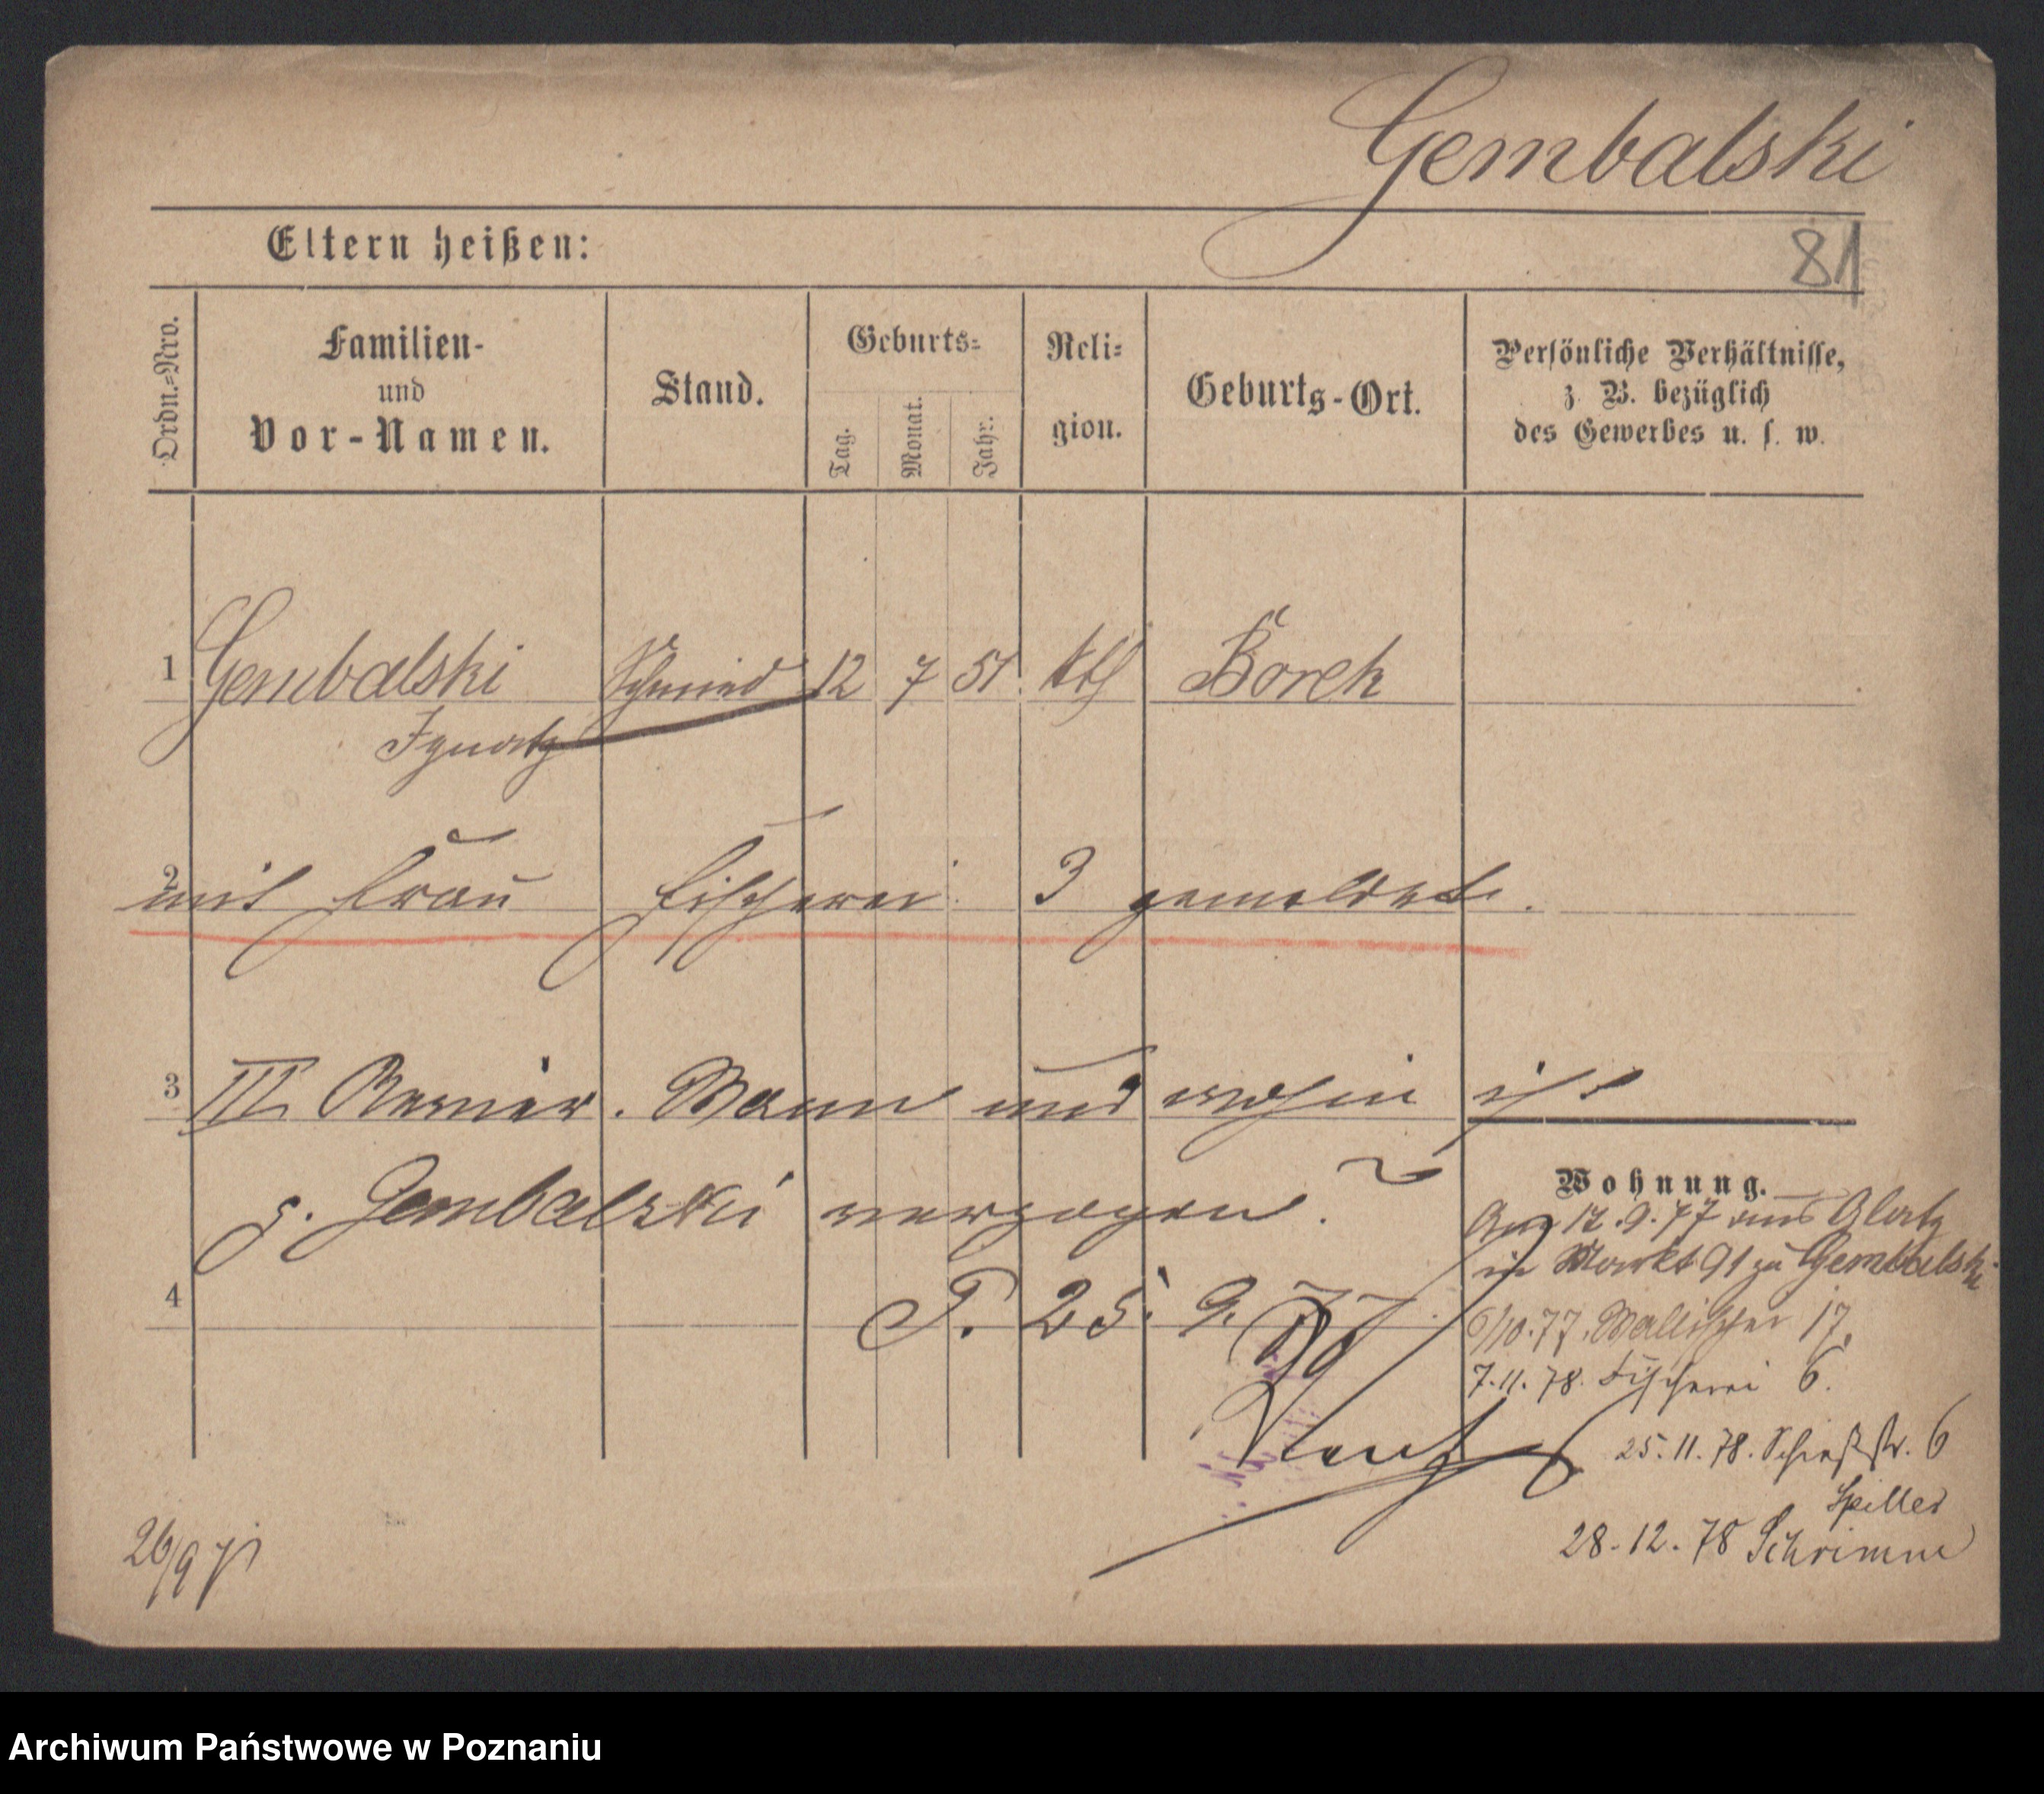 Gembalski
81
Eltern heißen:
Ordn.=Nro.
Familien-
und
Vor-Namen.
Stand.
Geburts=
Tag.
Monat.
Jahr.
Reli=
gion.
Geburts-Ort.
Persönliche Verhältnisse,
z. B. bezüglich
des Gewerbes u. s. w.
1 Gembalski Schmied 12 7 51 kth Borek
Ignatz
2 mit Frau Fischerei 3 gemeldet.
3 III Revier. Wann und wohin ist
p. Gembalski verzogen?
4 P. 25. 9. 77.
Wohnung.
17.9.77 aus Glatz
in Markt 91 zu Gembalski
6/10.77. Wallischei 17.
7.11.78. Fischerei 6.
25.11.78. Schießstr. 6
Spiller
28.12.78 Schrimm
26/9
Archiwum Państwowe w Poznaniu